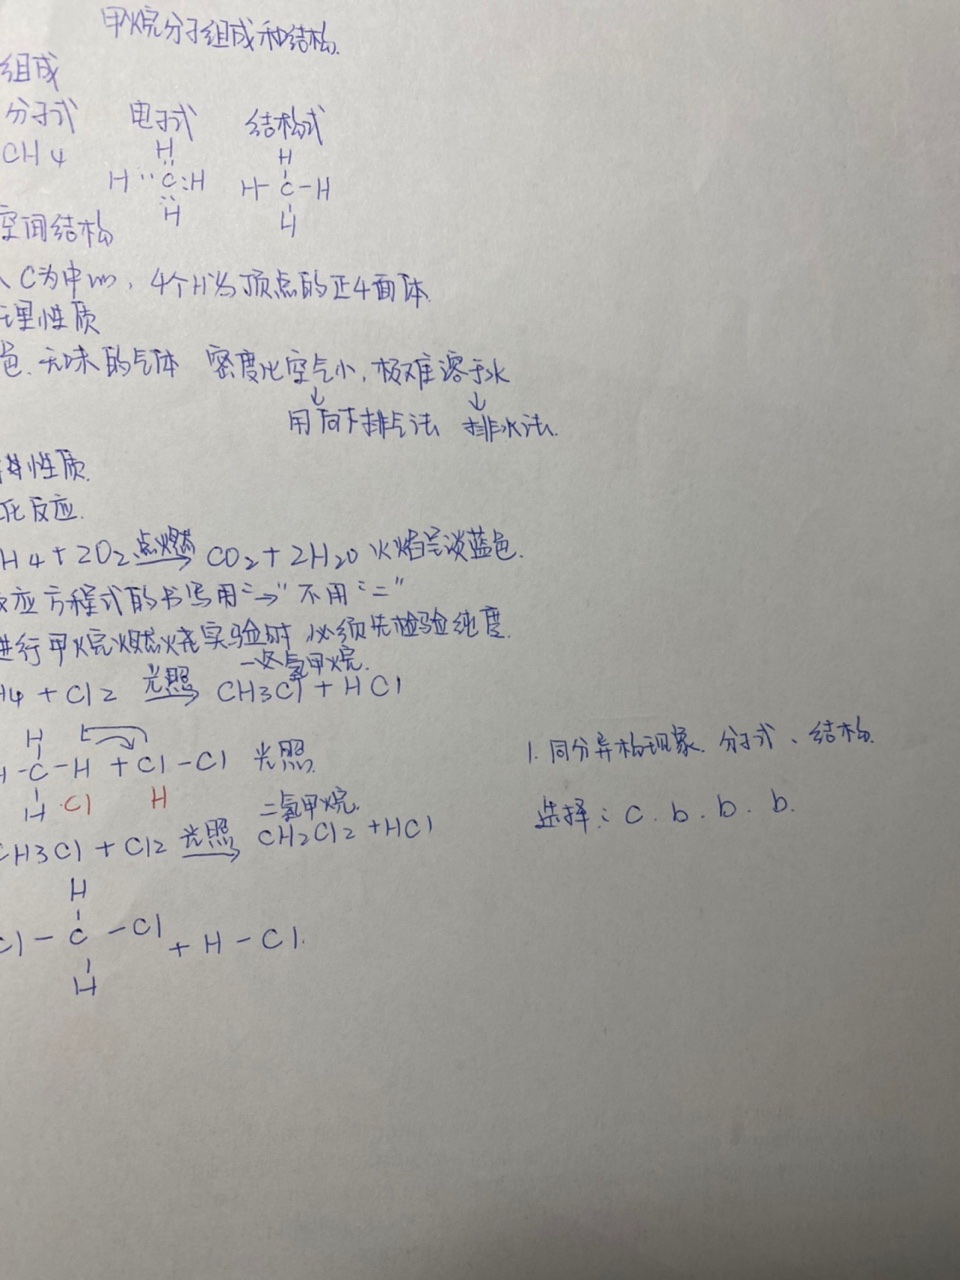 甲烷分子组成和结构.
组成
分子式 电子式 结构式
CH4
H
H : C : H
H
H
H-C-H
H
空间结构
C为中心, 4个H为顶点的正4面体.
理性质
色. 无味的气体 密度比空气小, 极难溶于水
↓ ↓
用向下排气法 排水法.
性质.
化反应.
H4 + 2O2 点燃→ CO2 + 2H2O 火焰呈淡蓝色.
反应方程式的书写用"→" 不用"="
进行甲烷燃烧实验时 必须先检验纯度.
一氯甲烷.
H4 + Cl2 光照→ CH3Cl + HCl
H
H-C-H + Cl-Cl 光照.
H Cl H
二氯甲烷.
CH3Cl + Cl2 光照→ CH2Cl2 + HCl
H
Cl-C-Cl + H-Cl.
H
1. 同分异构现象. 分子式、结构.
选择: C. b. b. b.